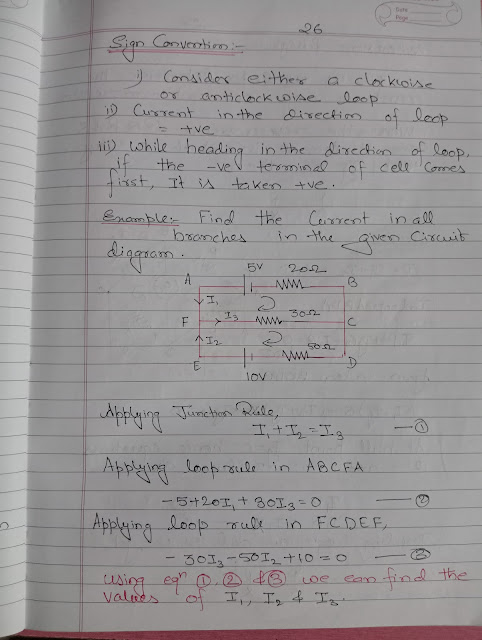 Date
Page
26
Sign Convention:-
i) Consider either a clockwise
or anticlockwise loop
ii) Current in the direction of loop
= +ve
iii) while heading in the direction of loop,
if the -ve terminal of cell comes
first, It is taken +ve.
Example:- Find the Current in all
branches in the given Circuit
diagram.
5V 20Ω
A B
I₁
F I₃ 30Ω C
I₂ 50Ω
E D
10V
Applying Junction Rule,
I₁ + I₂ = I₃ — ①
Applying loop rule in ABCFA
-5+20I₁ + 30I₃ = 0 — ②
Applying loop rule in FCDEF,
- 30I₃ - 50I₂ + 10 = 0 — ③
using eqⁿ ①, ② & ③ we can find the
values of I₁, I₂ & I₃.